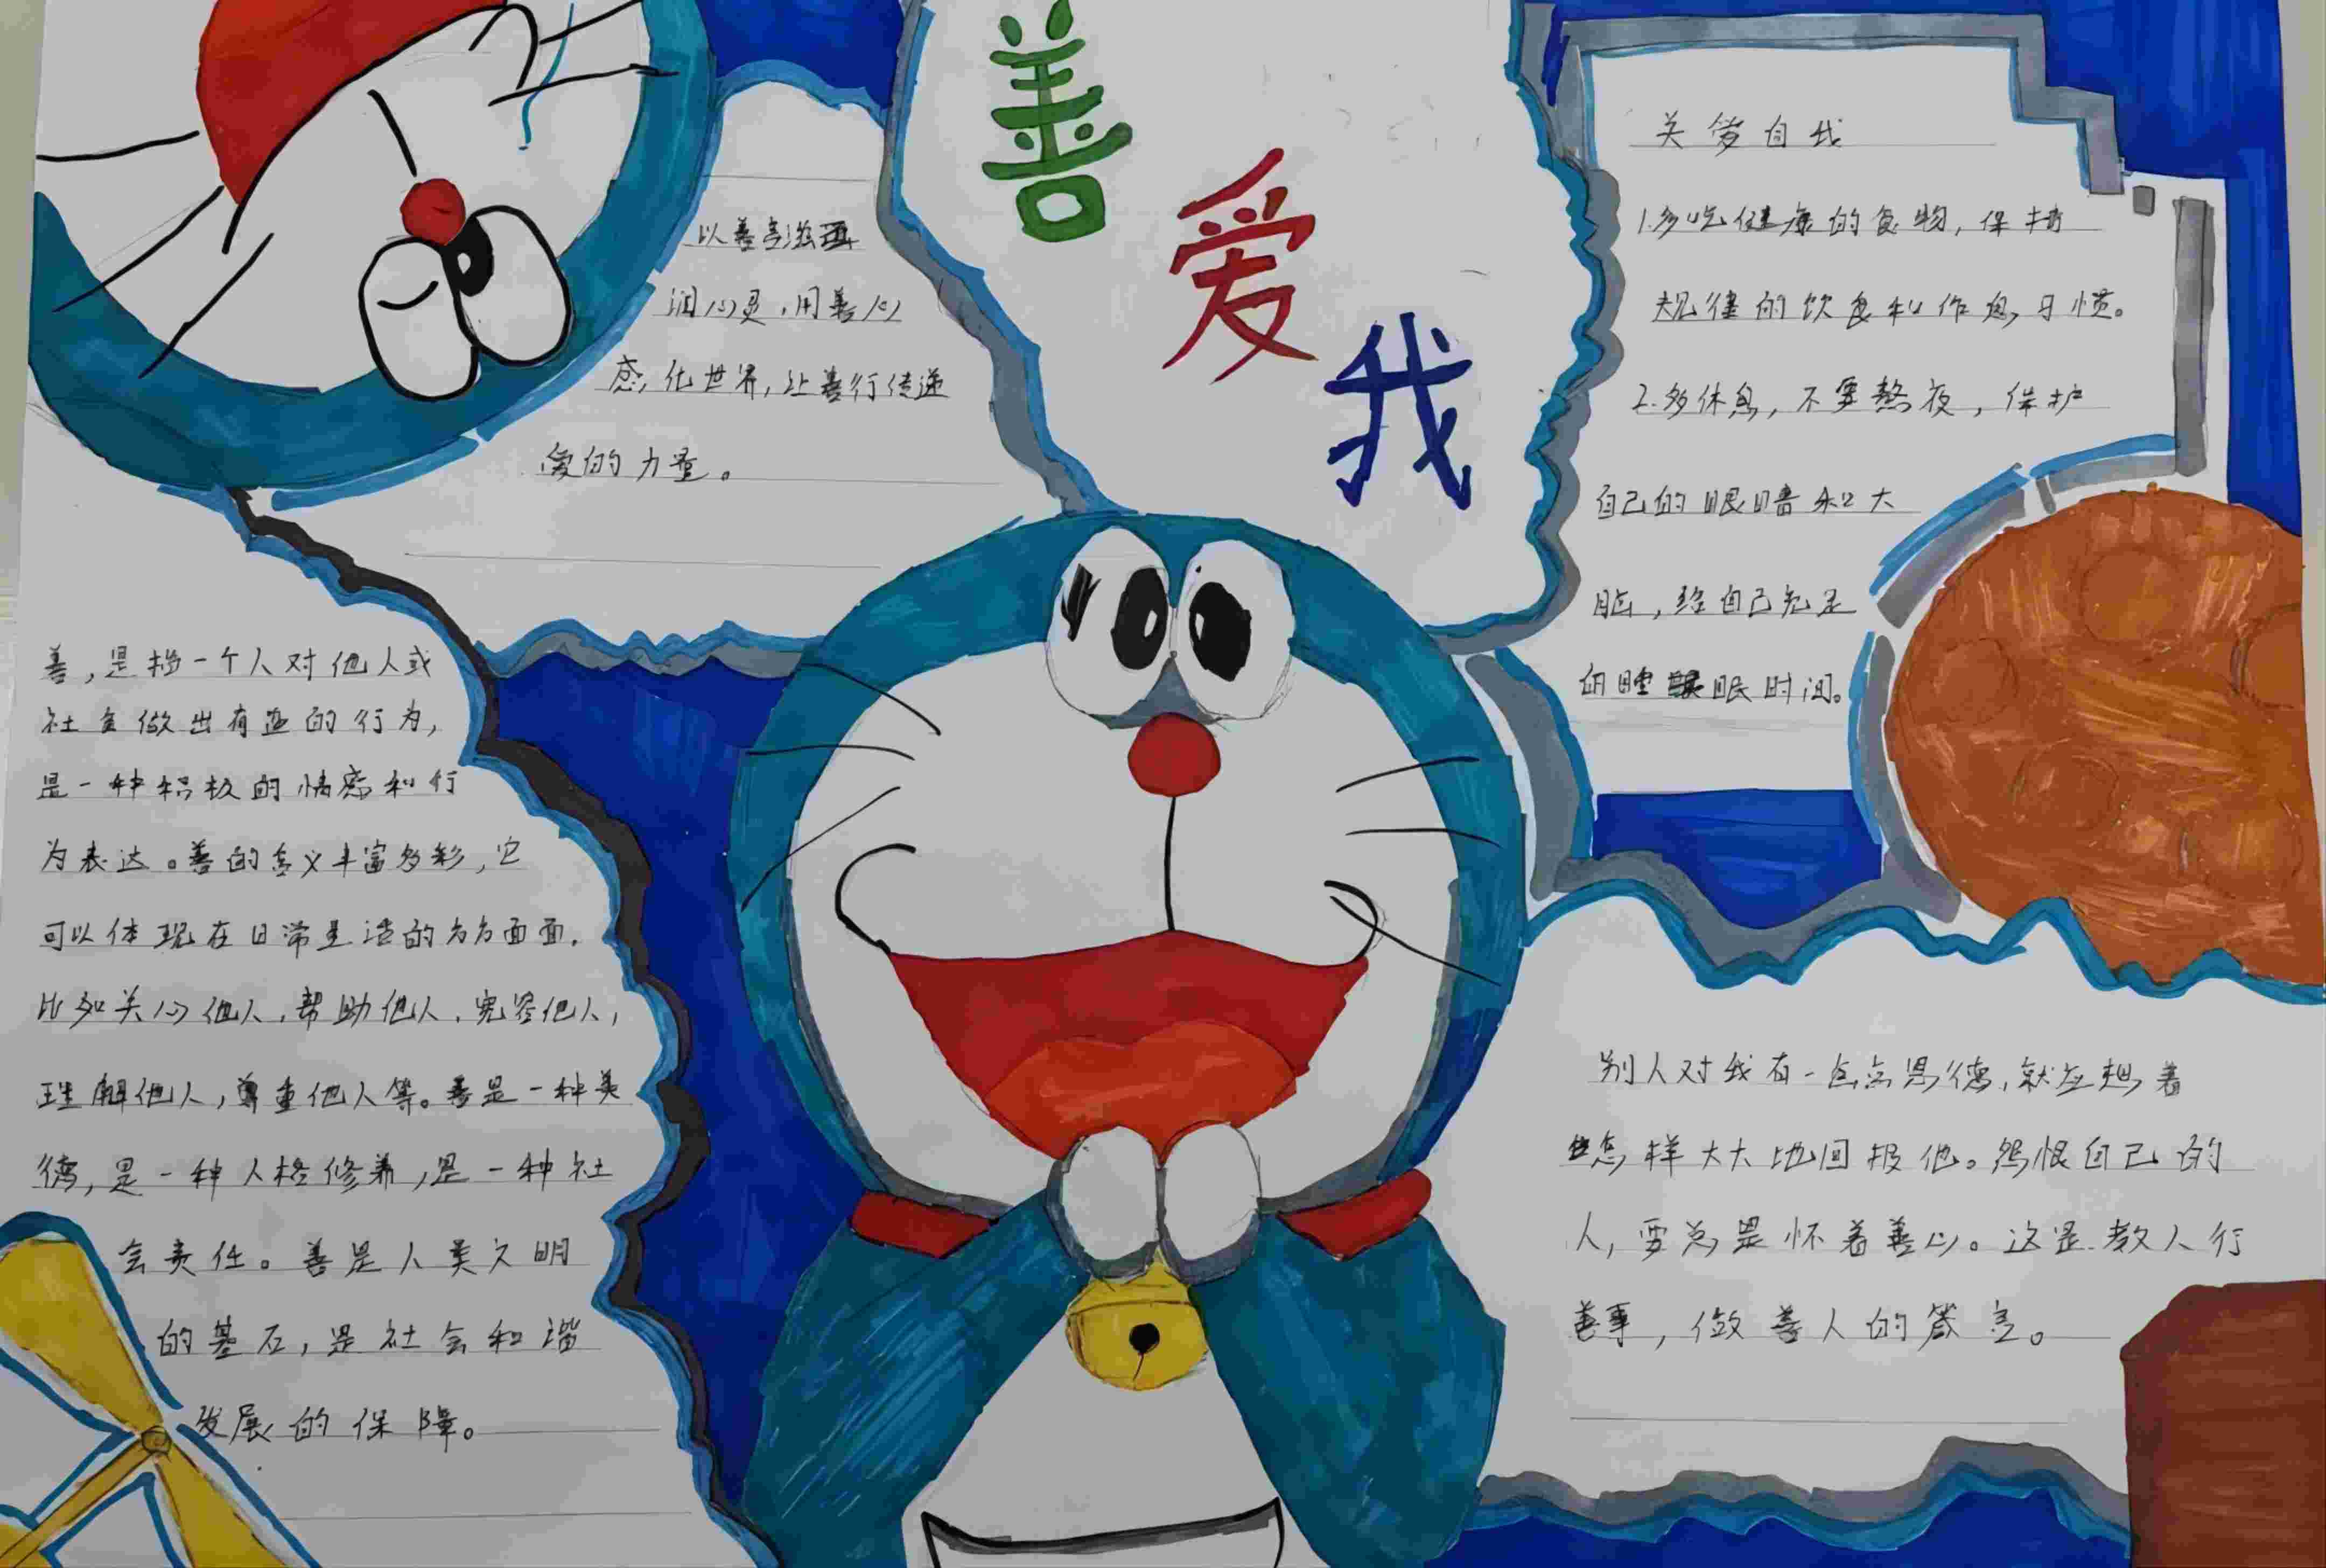 善
爱
我
以善言滋
润心灵，用善心
感化世界，让善行传递
爱的力量。
善，是指一个人对他人或
社会做出有益的行为，
是一种积极的情感和行
为表达。善的含义丰富多彩，它
可以体现在日常生活的方方面面，
比如关心他人，帮助他人，宽容他人，
理解他人，尊重他人等。善是一种美
德，是一种人格修养，是一种社
会责任。善是人类文明
的基石，是社会和谐
发展的保障。
关爱自我
1.多吃健康的食物，保持
规律的饮食和作息习惯。
2.多休息，不要熬夜，保护
自己的眼睛和大
脑，给自己充足
的睡眠时间。
别人对我有一点点恩德，就应想着
怎样大大地回报他。怨恨自己的
人，要总是怀着善心。这是教人行
善事，做善人的箴言。